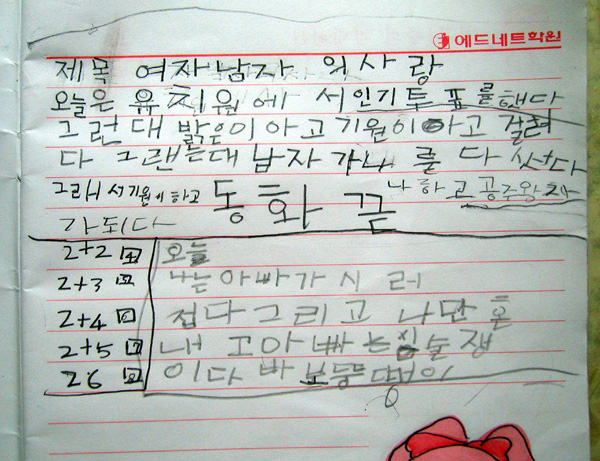 에드네트학원
제목 여자남자 의사랑
오늘은 유치원에 서인기투표를했다
그런대 밝은이아고기원이아고 걸려
다 그랜는대 남자가나를 다 싯다
그래서 서기원이하고 나하고공주왕자
가되다 동화 끝
2+2 오늘
2+3 나는아빠가시러
2+4 접다그리고나만혼
2+5 내고아빠는심술쟁
26 이다바보똥멍이